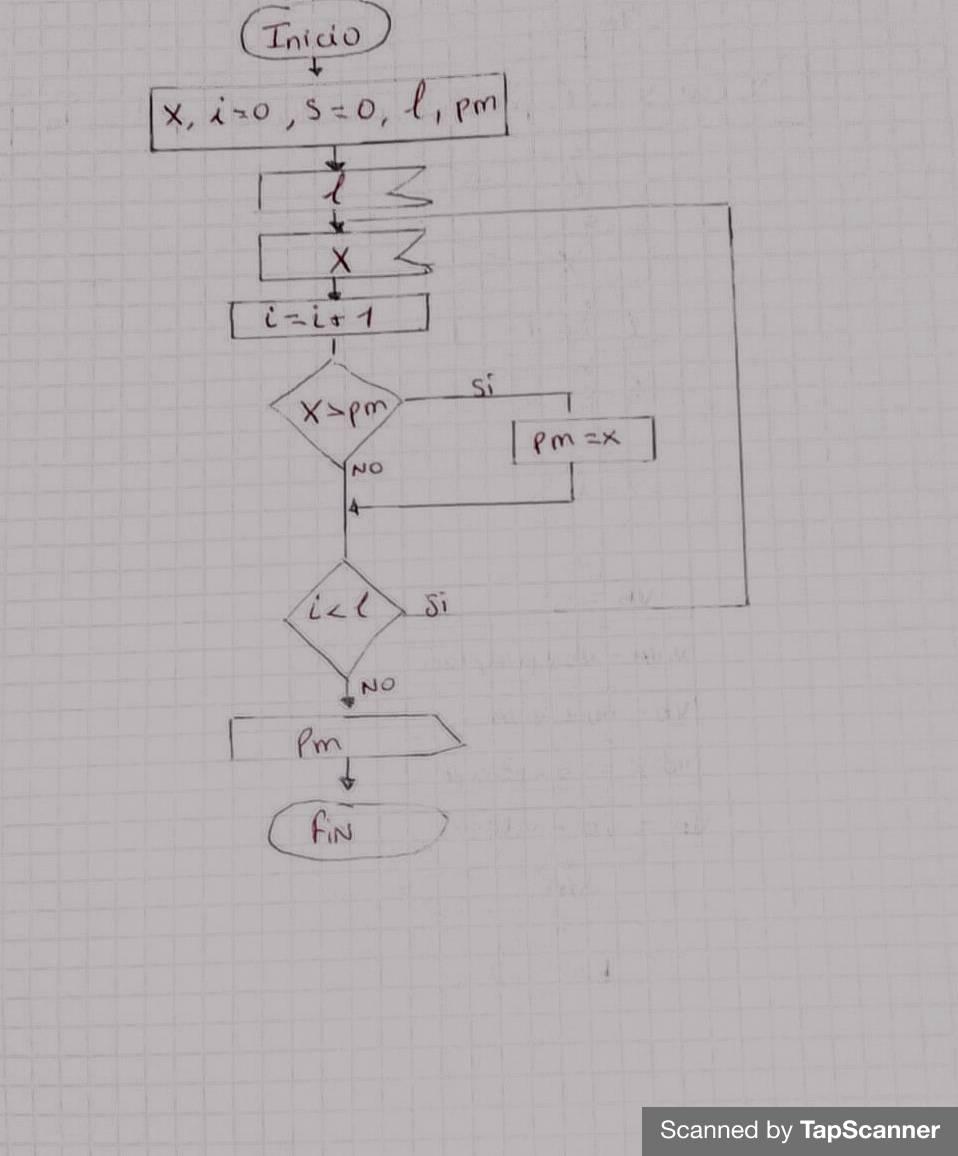 Inicio
X, i=0, s=0, l, pm
l
X
i=i+1
X>pm
Si
pm=x
NO
i<l
Si
NO
Pm
FiN
Scanned by TapScanner